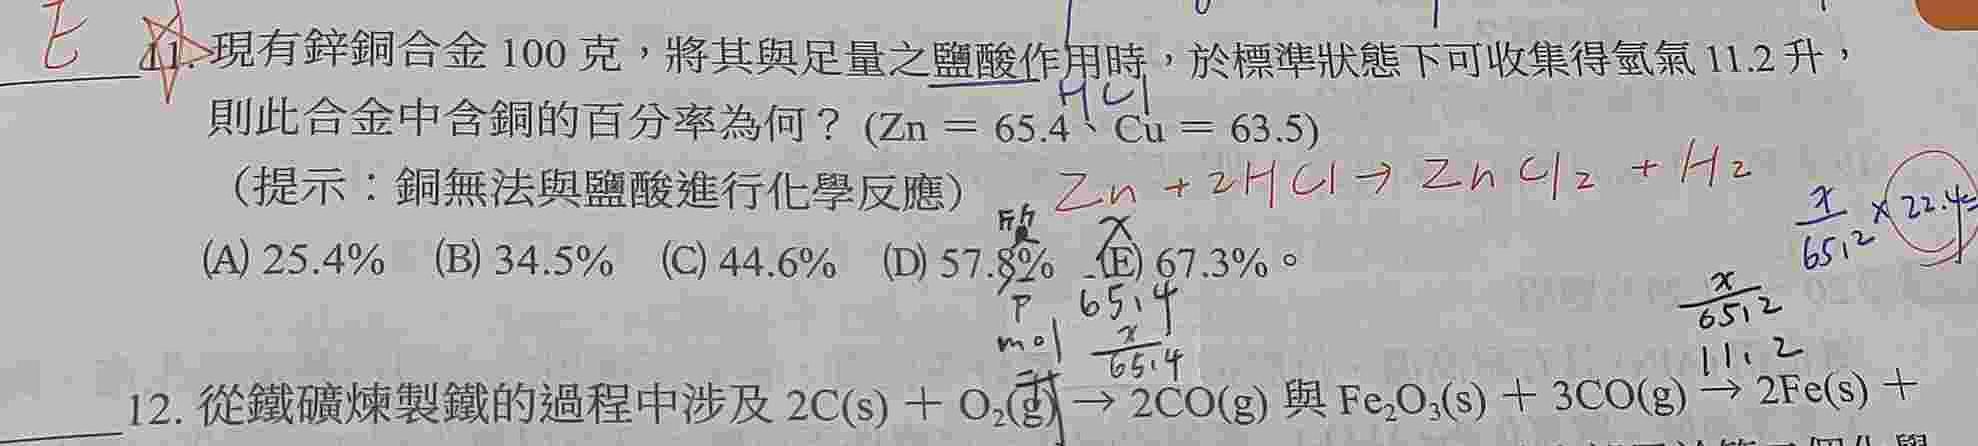 E 11. 現有鋅銅合金 100 克，將其與足量之鹽酸作用時，於標準狀態下可收集得氫氣 11.2 升，
HCl
則此合金中含銅的百分率為何？(Zn = 65.4、Cu = 63.5)
（提示：銅無法與鹽酸進行化學反應） Zn + 2HCl → ZnCl2 + H2
x/65.2 × 22.4=
質 x
(A) 25.4% (B) 34.5% (C) 44.6% (D) 57.8% (E) 67.3%。
65.4
x/65.2
mol x/65.4
11.2
12. 從鐵礦煉製鐵的過程中涉及 2C(s) + O₂(g) → 2CO(g) 與 Fe₂O₃(s) + 3CO(g) → 2Fe(s) +